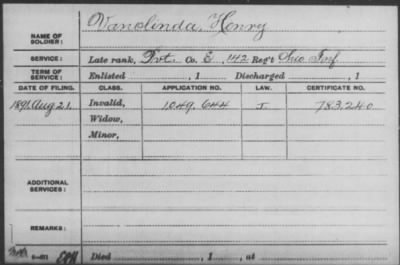 NAME OF SOLDIER: Vanolinda, Henry
SERVICE: Late rank, Pvt. Co. E, 142 Reg't Ohio Inf.
TERM OF SERVICE: Enlisted , 1 Discharged , 1
DATE OF FILING. CLASS. APPLICATION NO. LAW. CERTIFICATE NO.
1891 Aug 21. Invalid, 1049,644 J 783,240
Widow,
Minor,
ADDITIONAL SERVICES:
REMARKS:
Died , 1 , at